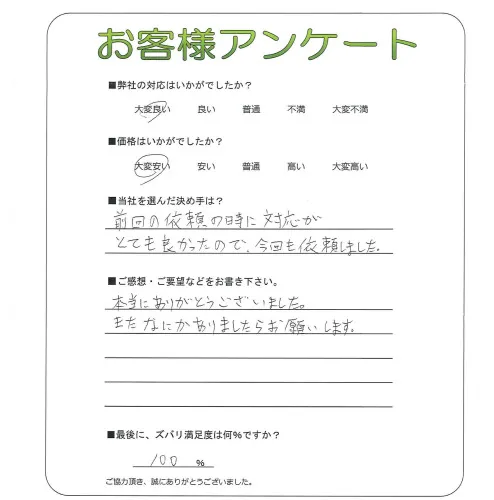 お客様アンケート
■弊社の対応はいかがでしたか?
大変良い 良い 普通 不満 大変不満
■価格はいかがでしたか?
大変安い 安い 普通 高い 大変高い
■当社を選んだ決め手は?
前回の依頼の時に対応が
とても良かったので、今回も依頼しました。
■ご感想・ご要望などをお書き下さい。
本当にありがとうございました。
またなにかありましたらお願いします。
■最後に、ズバリ満足度は何%ですか?
100 %
ご協力頂き、誠にありがとうございました。